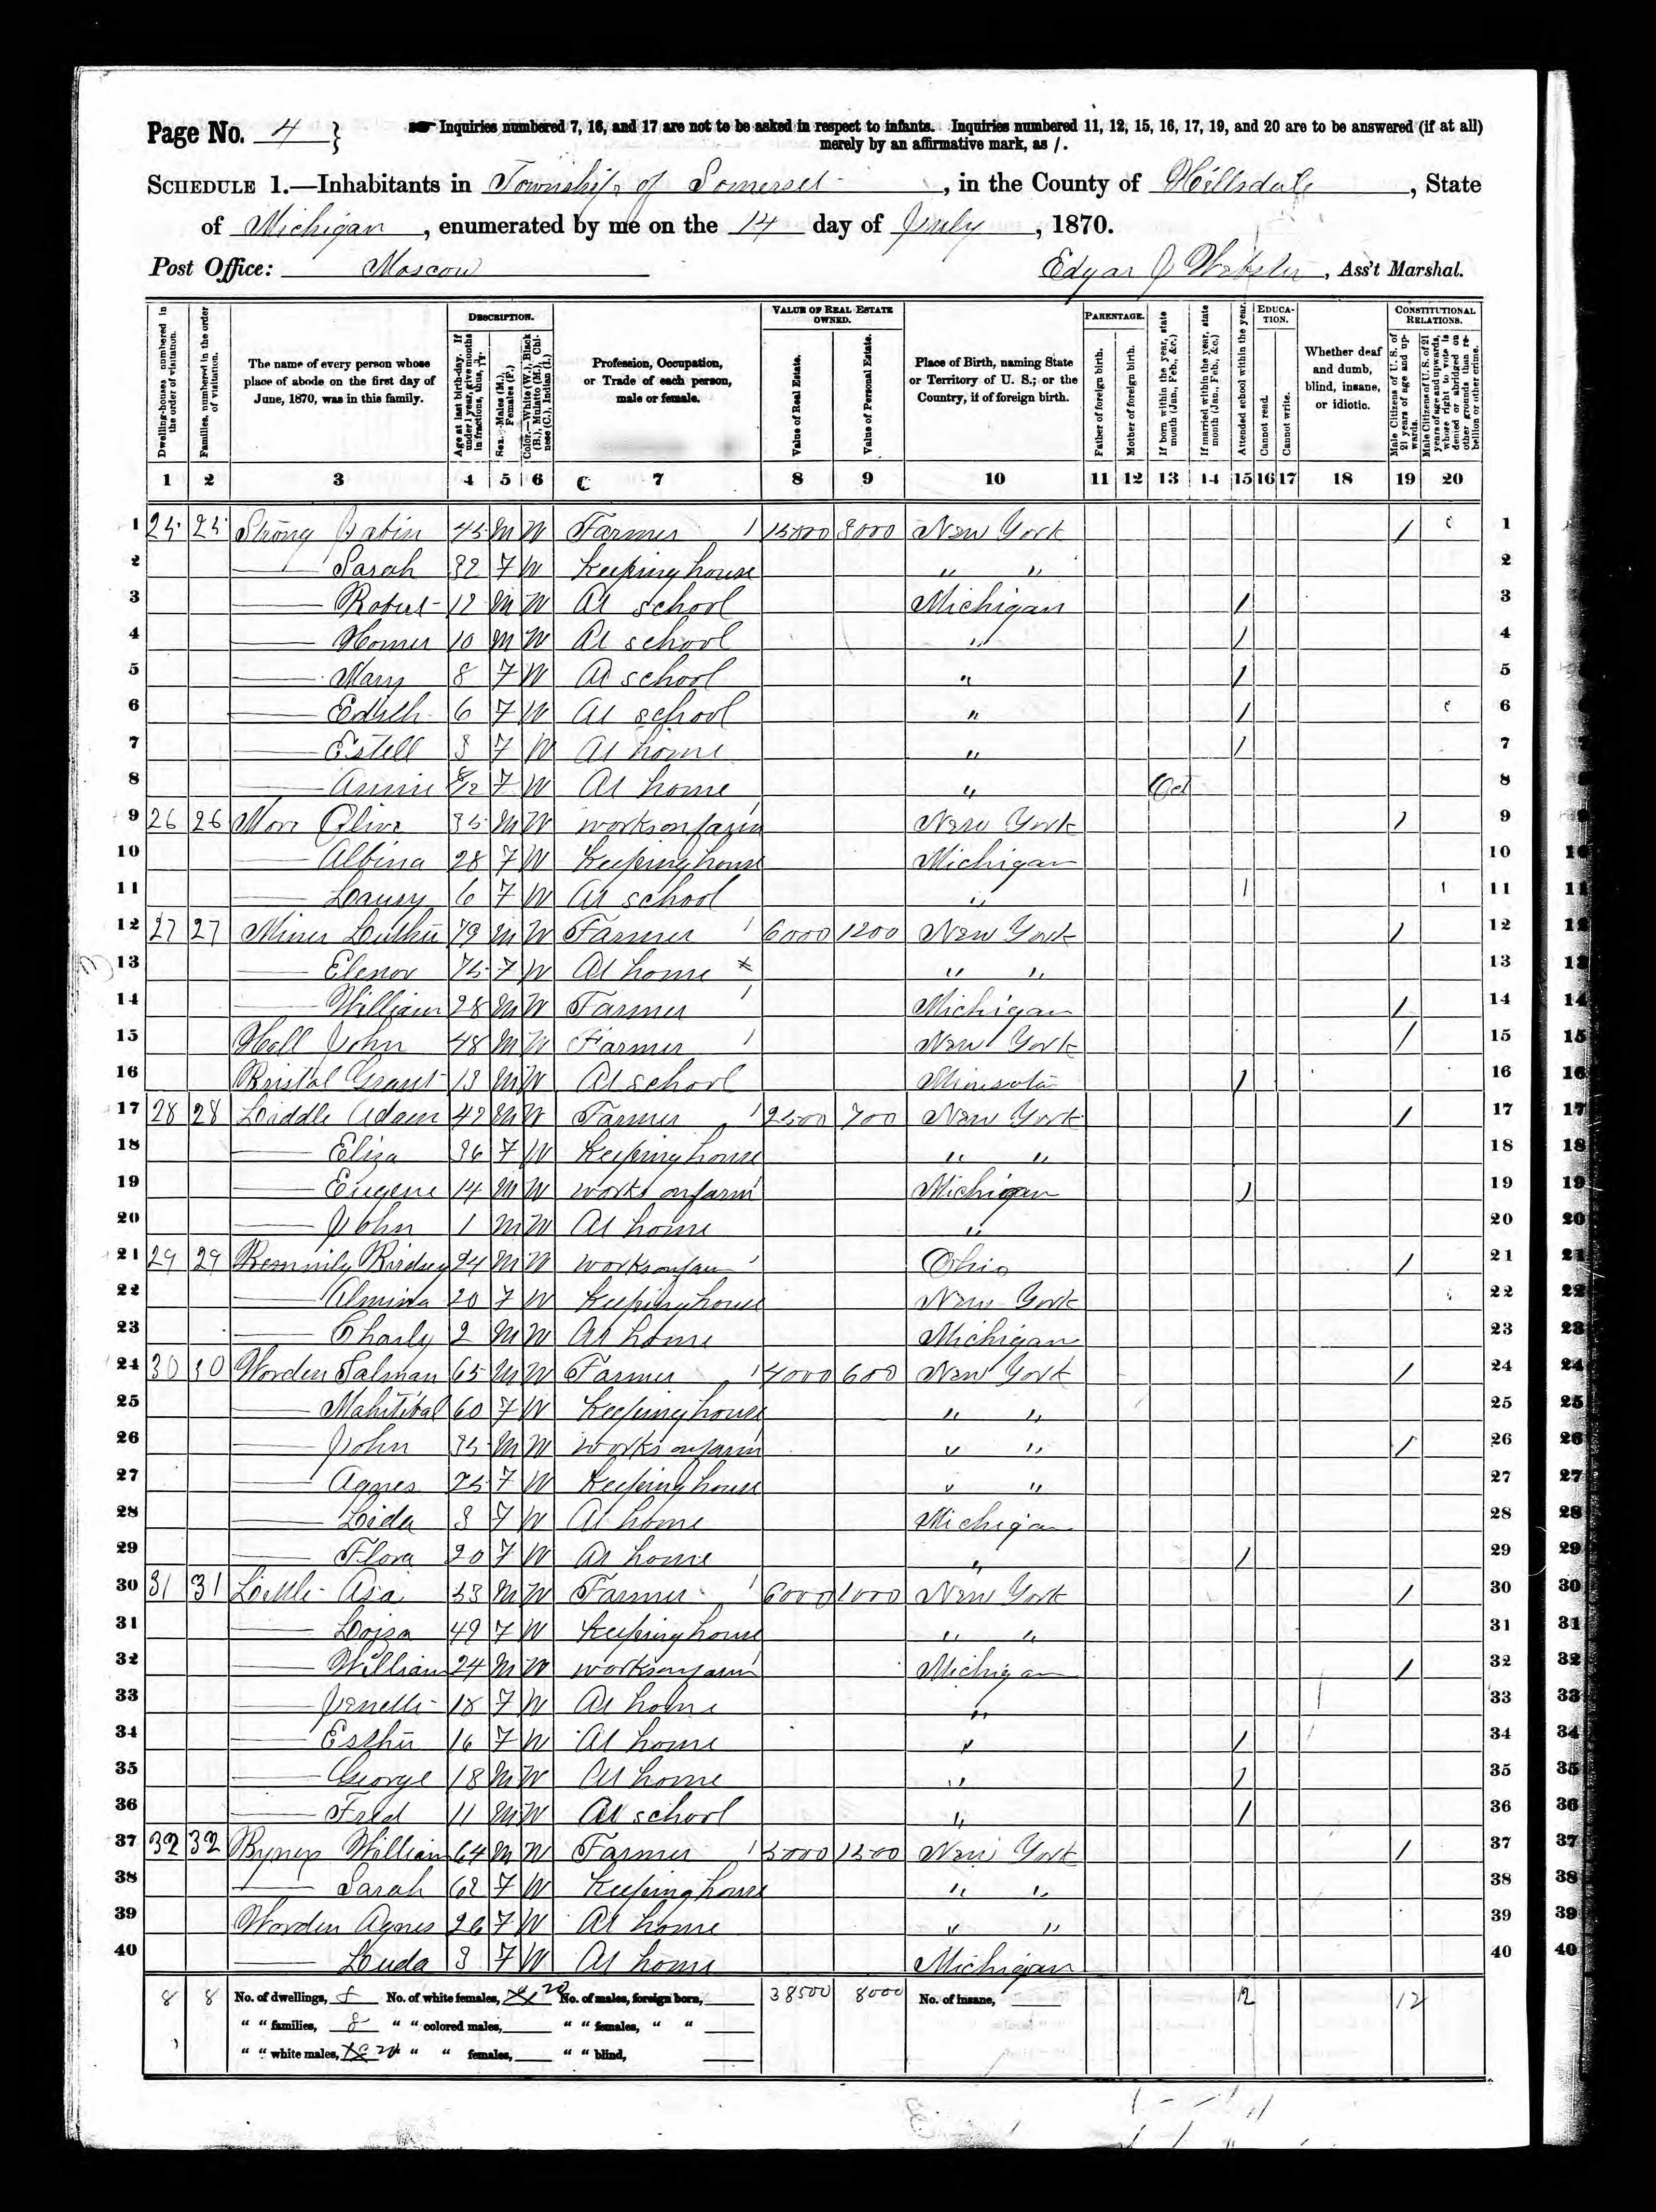 Page No. 4 }
Inquiries numbered 7, 16, and 17 are not to be asked in respect to infants. Inquiries numbered 11, 12, 15, 16, 17, 19, and 20 are to be answered (if at all)
merely by an affirmative mark, as /.
SCHEDULE 1.—Inhabitants in Township of Somerset, in the County of Hillsdale, State
of Michigan, enumerated by me on the 14 day of July, 1870.
Post Office: Moscow
Edgar J Webster, Ass't Marshal.
Dwelling-houses numbered in the order of visitation.
Families, numbered in the order of visitation.
The name of every person whose place of abode on the first day of June, 1870, was in this family.
DESCRIPTION.
Age at last birth-day. If under 1 year, give months in fractions, thus, 3/12.
Sex.—Males (M.), Females (F.)
Color.—White (W.), Black (B.), Mulatto (M.), Chinese (C.), Indian (I.)
Profession, Occupation, or Trade of each person, male or female.
VALUE OF REAL ESTATE OWNED.
Value of Real Estate.
Value of Personal Estate.
Place of Birth, naming State or Territory of U. S.; or the Country, if of foreign birth.
PARENTAGE.
Father of foreign birth.
Mother of foreign birth.
If born within the year, state month (Jan., Feb., &c.)
If married within the year, state month (Jan., Feb., &c.)
Attended school within the year.
EDUCATION.
Cannot read.
Cannot write.
Whether deaf and dumb, blind, insane, or idiotic.
CONSTITUTIONAL RELATIONS.
Male Citizens of U. S. of 21 years of age and upwards.
Male Citizens of U. S. of 21 years of age and upwards, whose right to vote is denied or abridged on other grounds than rebellion or other crime.
1 2 3 4 5 6 7 8 9 10 11 12 13 14 15 16 17 18 19 20
1 25 25 Strong 45 M W Farmer / 15000 3000 New York / 1
2 — Sarah 32 F W Keeping house " " 2
3 — Robert 12 M W At school Michigan / 3
4 — Homer 10 M W At school " / 4
5 — Mary 8 F W At school " / 5
6 — Edith 6 F W At school " / 6
7 — Estell 3 F W At home " / 7
8 — Annie 8/12 F W At home " Oct 8
9 26 26 35 M W works on farm / New York / 9
10 — Albina 28 F W Keeping house Michigan 10
11 — 6 F W At school " / 11
12 27 27 Miner Luther 79 M W Farmer / 6000 1200 New York / 12
13 — Elenor 75 F W At home " " 13
14 — William 28 M W Farmer / Michigan / 14
15 Hall John 48 M W Farmer / New York / 15
16 Bristol Grant 13 M W At school Minisota / 16
17 28 28 Liddle Adam 42 M W Farmer / 2500 700 New York / 17
18 — Eliza 36 F W Keeping house " " 18
19 — Eugene 14 M W works on farm / Michigan / 19
20 — John 1 M W At home " 20
21 29 29 Birdsey 24 M W works on farm / Ohio / 21
22 — Almina 20 F W Keeping house New York 22
23 — Charly 2 M W At home Michigan 23
24 30 30 Worden Salman 65 M W Farmer / 4000 600 New York / 24
25 — Mahitibal 60 F W Keeping house " " 25
26 — John 35 M W works on farm / " " / 26
27 — Agnes 25 F W Keeping house " " 27
28 — Lida 3 F W At home Michigan 28
29 — Flora 20 F W At home " / 29
30 31 31 Little Asa 53 M W Farmer / 6000 1000 New York / 30
31 — 49 F W Keeping house " " 31
32 — William 24 M W works on farm / Michigan / 32
33 — Jenette 18 F W At home " 33
34 — Esther 16 F W At home " / 34
35 — George 18 M W At home " / 35
36 — Fred 11 M W At school " / 36
37 32 32 William 64 M W Farmer / 5000 1500 New York / 37
38 — Sarah 62 F W Keeping house " " 38
39 Worden Agnes 26 F W At home " " 39
40 — Luda 3 F W At home Michigan 40
8 8 No. of dwellings, 8 No. of white females, 20 No. of males, foreign born, 38500 8000 No. of insane, 12 12
" " families, 8 " " colored males, " " females, " "
" " white males, 20 " " females, " " blind,